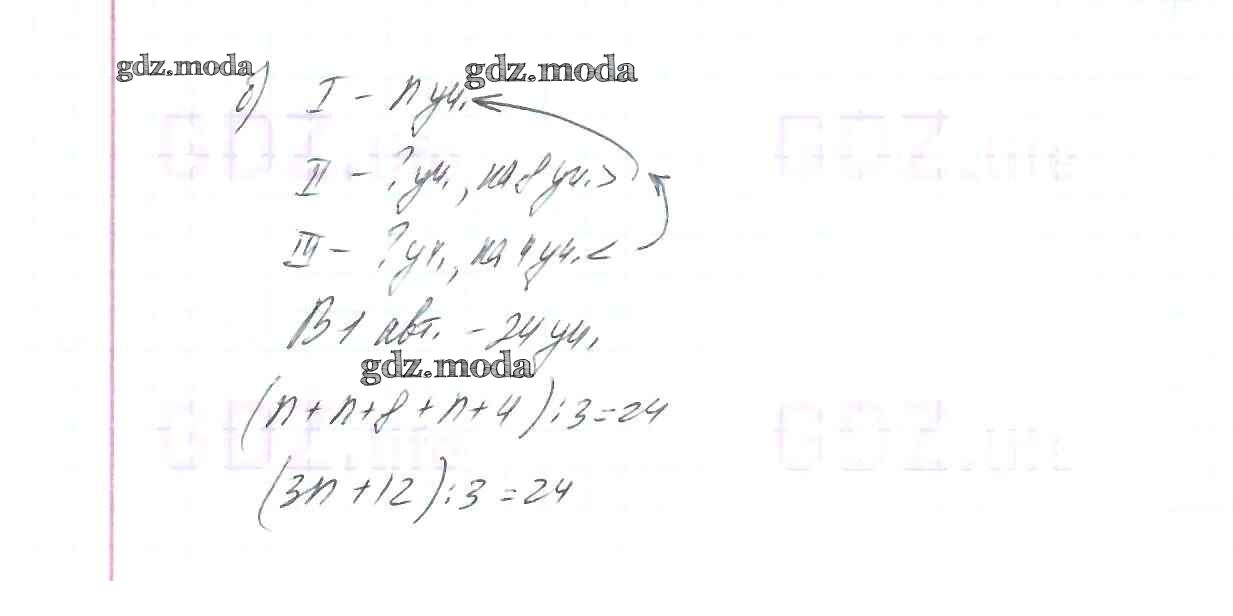 gdz.moda
gdz.moda
б) I - n уч.
II - ? уч., на 8 уч. >
III - ? уч., на 4 уч. <
В 1 авт. - 24 уч.
gdz.moda
(n + n + 8 + n + 4) : 3 = 24
(3n + 12) : 3 = 24
GDZ.life
GDZ.life
GDZ.life
GDZ.life